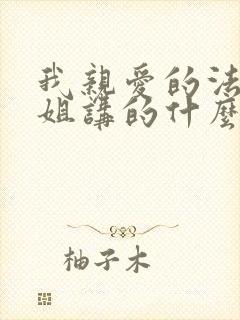 我親愛的法
姐講的什麼
柚子木